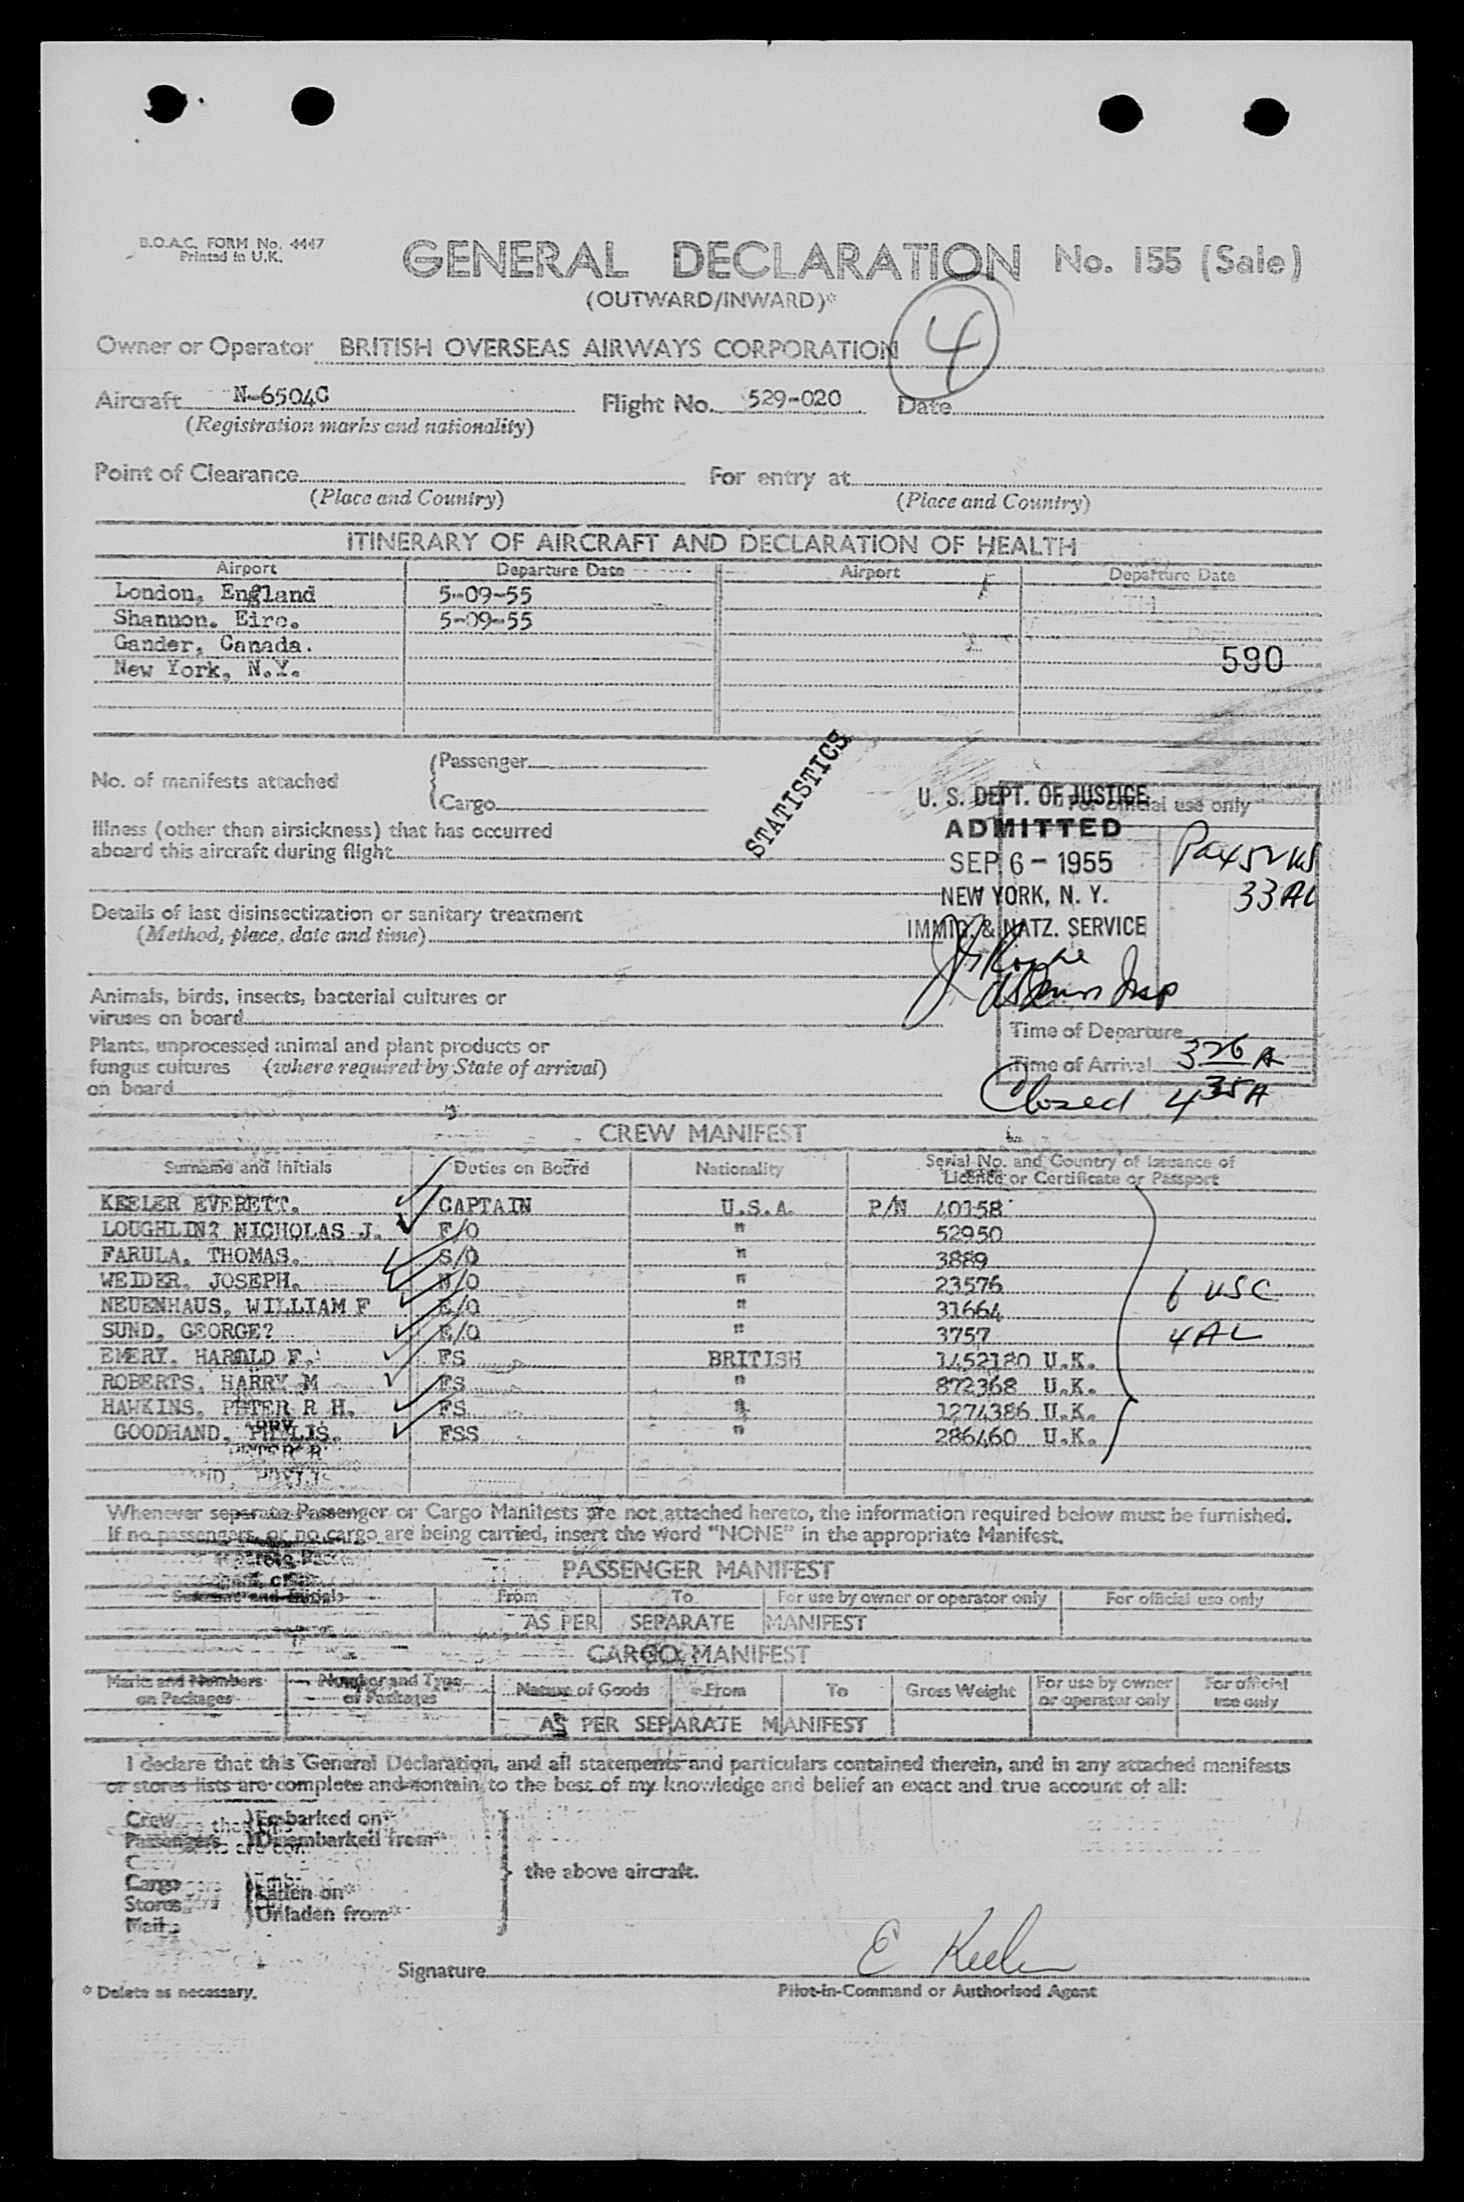 B.O.A.C. FORM No. 4447
Printed in U.K.
GENERAL DECLARATION No. 155 (Sale)
(OUTWARD/INWARD)*
4
Owner or Operator BRITISH OVERSEAS AIRWAYS CORPORATION
Aircraft N-6504C Flight No. 529-020 Date
(Registration marks and nationality)
Point of Clearance For entry at
(Place and Country) (Place and Country)
ITINERARY OF AIRCRAFT AND DECLARATION OF HEALTH
Airport Departure Date Airport Departure Date
London, England 5-09-55
Shannon. Eire. 5-09-55
Gander, Canada.
590
New York, N.Y.
STATISTICS
No. of manifests attached
Passenger
Cargo
For official use only
U. S. DEPT. OF JUSTICE
ADMITTED
SEP 6 - 1955
NEW YORK, N. Y.
IMMIG. & NATZ. SERVICE
33 AL
Illness (other than airsickness) that has occurred
aboard this aircraft during flight
Details of last disinsectization or sanitary treatment
(Method, place, date and time)
Animals, birds, insects, bacterial cultures or
viruses on board
Plants, unprocessed animal and plant products or
fungus cultures (where required by State of arrival)
on board
Insp
Time of Departure
Time of Arrival 326 A
Closed 435 A
CREW MANIFEST
Surname and Initials Duties on Board Nationality Serial No. and Country of Issuance of
Licence or Certificate or Passport
KEELER EVERETT. CAPTAIN U.S.A. P/N 40158
LOUGHLIN? NICHOLAS J. F/O " 52950
FARULA, THOMAS. S/O " 3889
WEIDER, JOSEPH. N/O " 23576
NEUENHAUS, WILLIAM F E/O " 31664
SUND, GEORGE? E/O " 3757
EMERY, HAROLD F. FS BRITISH 1452180 U.K.
ROBERTS, HARRY M FS " 872368 U.K.
HAWKINS, PETER R H. FS " 1274386 U.K.
GOODHAND, PHYLIS. FSS " 286460 U.K.
6 USC
4 AL
Whenever separate Passenger or Cargo Manifests are not attached hereto, the information required below must be furnished.
If no passengers, or no cargo are being carried, insert the word "NONE" in the appropriate Manifest.
PASSENGER MANIFEST
Surname and Initials From To For use by owner or operator only For official use only
AS PER SEPARATE MANIFEST
CARGO MANIFEST
Marks and Numbers on Packages Number and Type of Packages Nature of Goods From To Gross Weight For use by owner or operator only For official use only
AS PER SEPARATE MANIFEST
I declare that this General Declaration, and all statements and particulars contained therein, and in any attached manifests
or stores lists are complete and contain to the best of my knowledge and belief an exact and true account of all:
Crew Embarked on*
Passengers Disembarked from*
the above aircraft.
Cargo
Stores Laden on*
Mail Unladen from*
Signature E Keeler
* Delete as necessary. Pilot-in-Command or Authorised Agent